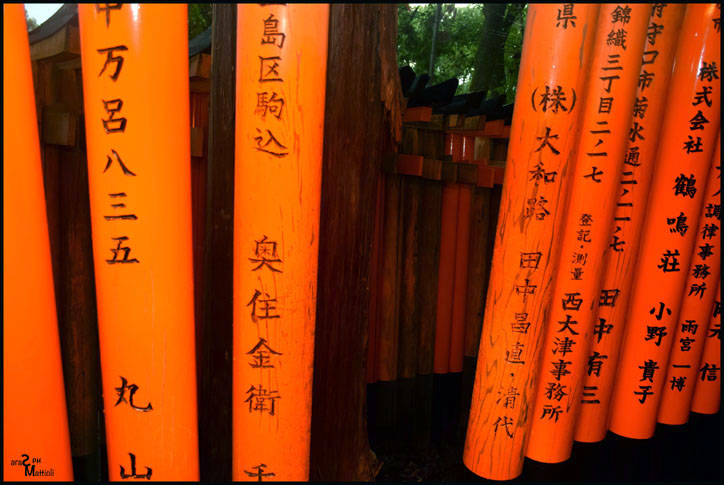 中万呂八三五 丸山
島区駒込 奥住金衛 千
県 (株)大和路 田中昌直・清代
錦織三丁目二ノ一七 登記・測量 西大津事務所
府守口市菊水通二ノ一ノ七 田中有三
株式会社 鶴鳴荘 小野貴子
調律事務所 雨宮一博
信
Sara Mattioli PH